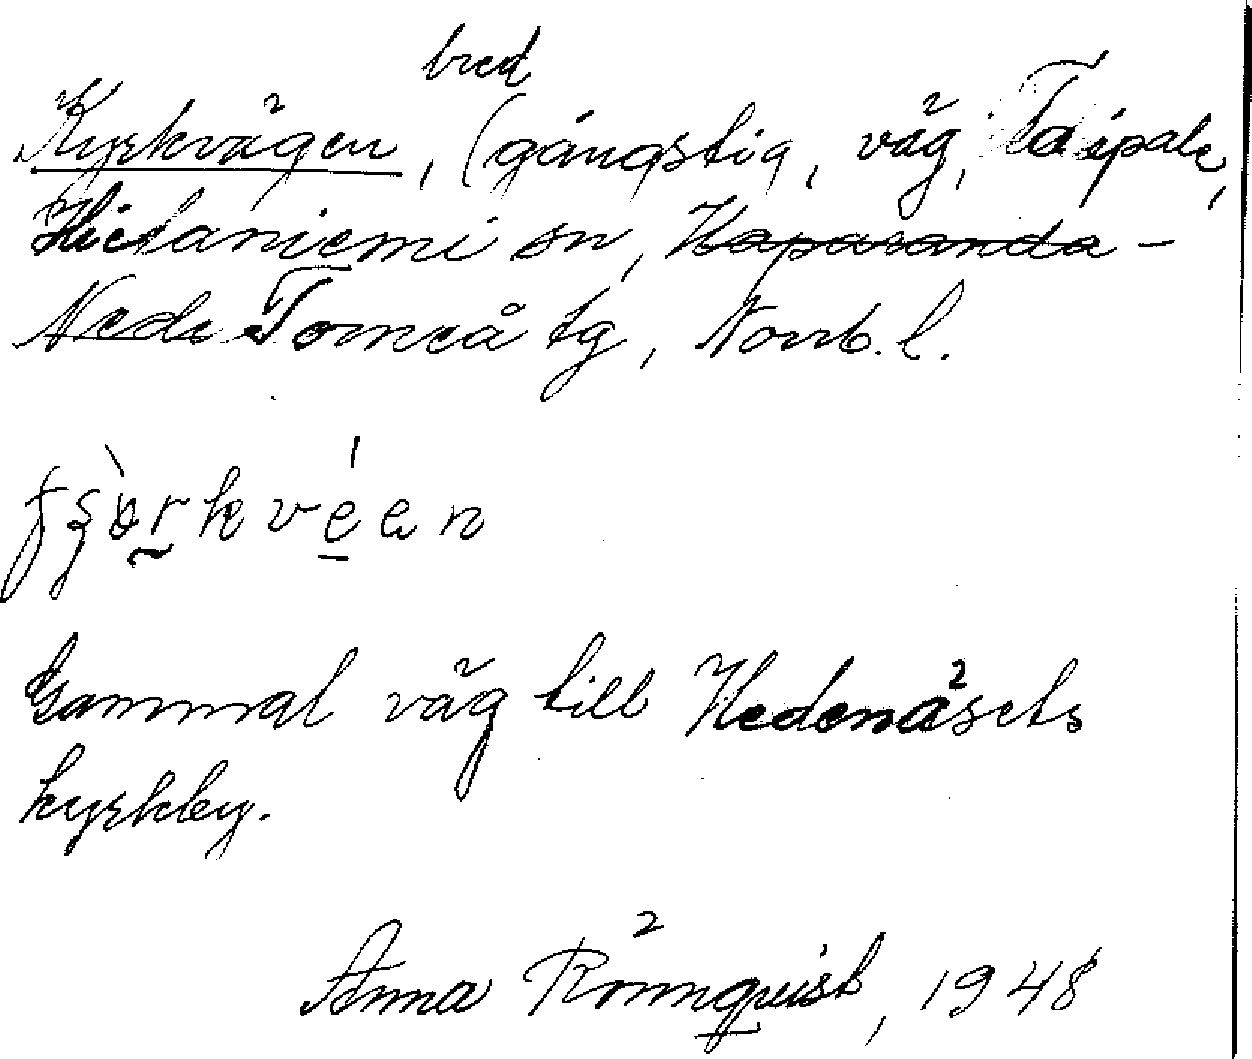 bred
Kyrkvägen, (gångstig, väg, Taipale,
Hietaniemi sn, Haparanda -
Neder Torneå tg, Norrb. l.
Gammal väg till Hedenäsets
kyrkby.
Anna Rönnquist, 1948